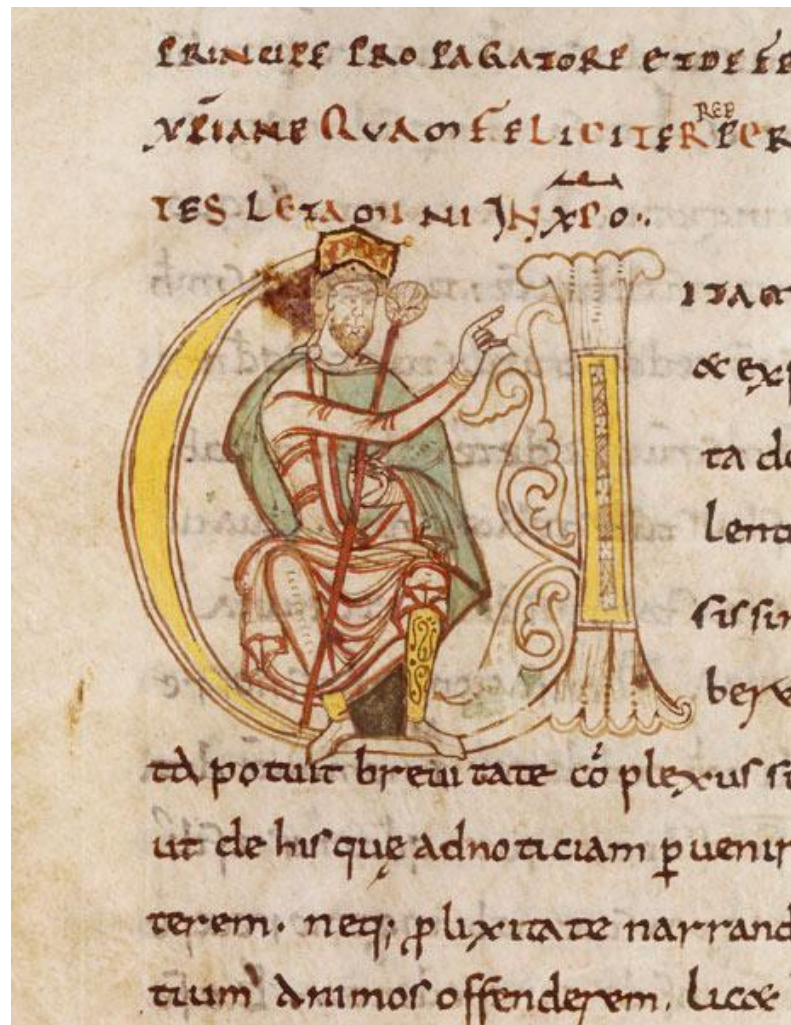 PRINCIPE PROPAGATORE ET DEFE
XPIANE QUAM FELICITER
TES LETAMINI IN XPO.
U ITAM
& exp
ta do
lent
sissim
ta potuit breuitate cōplexus
ut de his quę ad noticiam puenir
terem. neq; plixitate narrand
tium animos offenderem. lic&